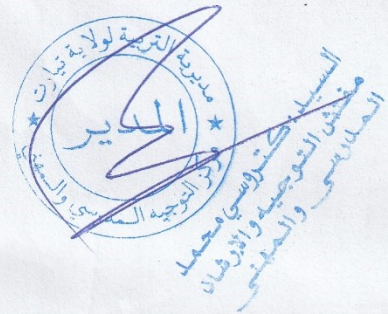 مديرية التربية لولاية تيارت
المدير
مركز التوجيه المدرسي والمهني
السيد
محمد
مفتش التوجيه والإرشاد
المدرسي والمهني